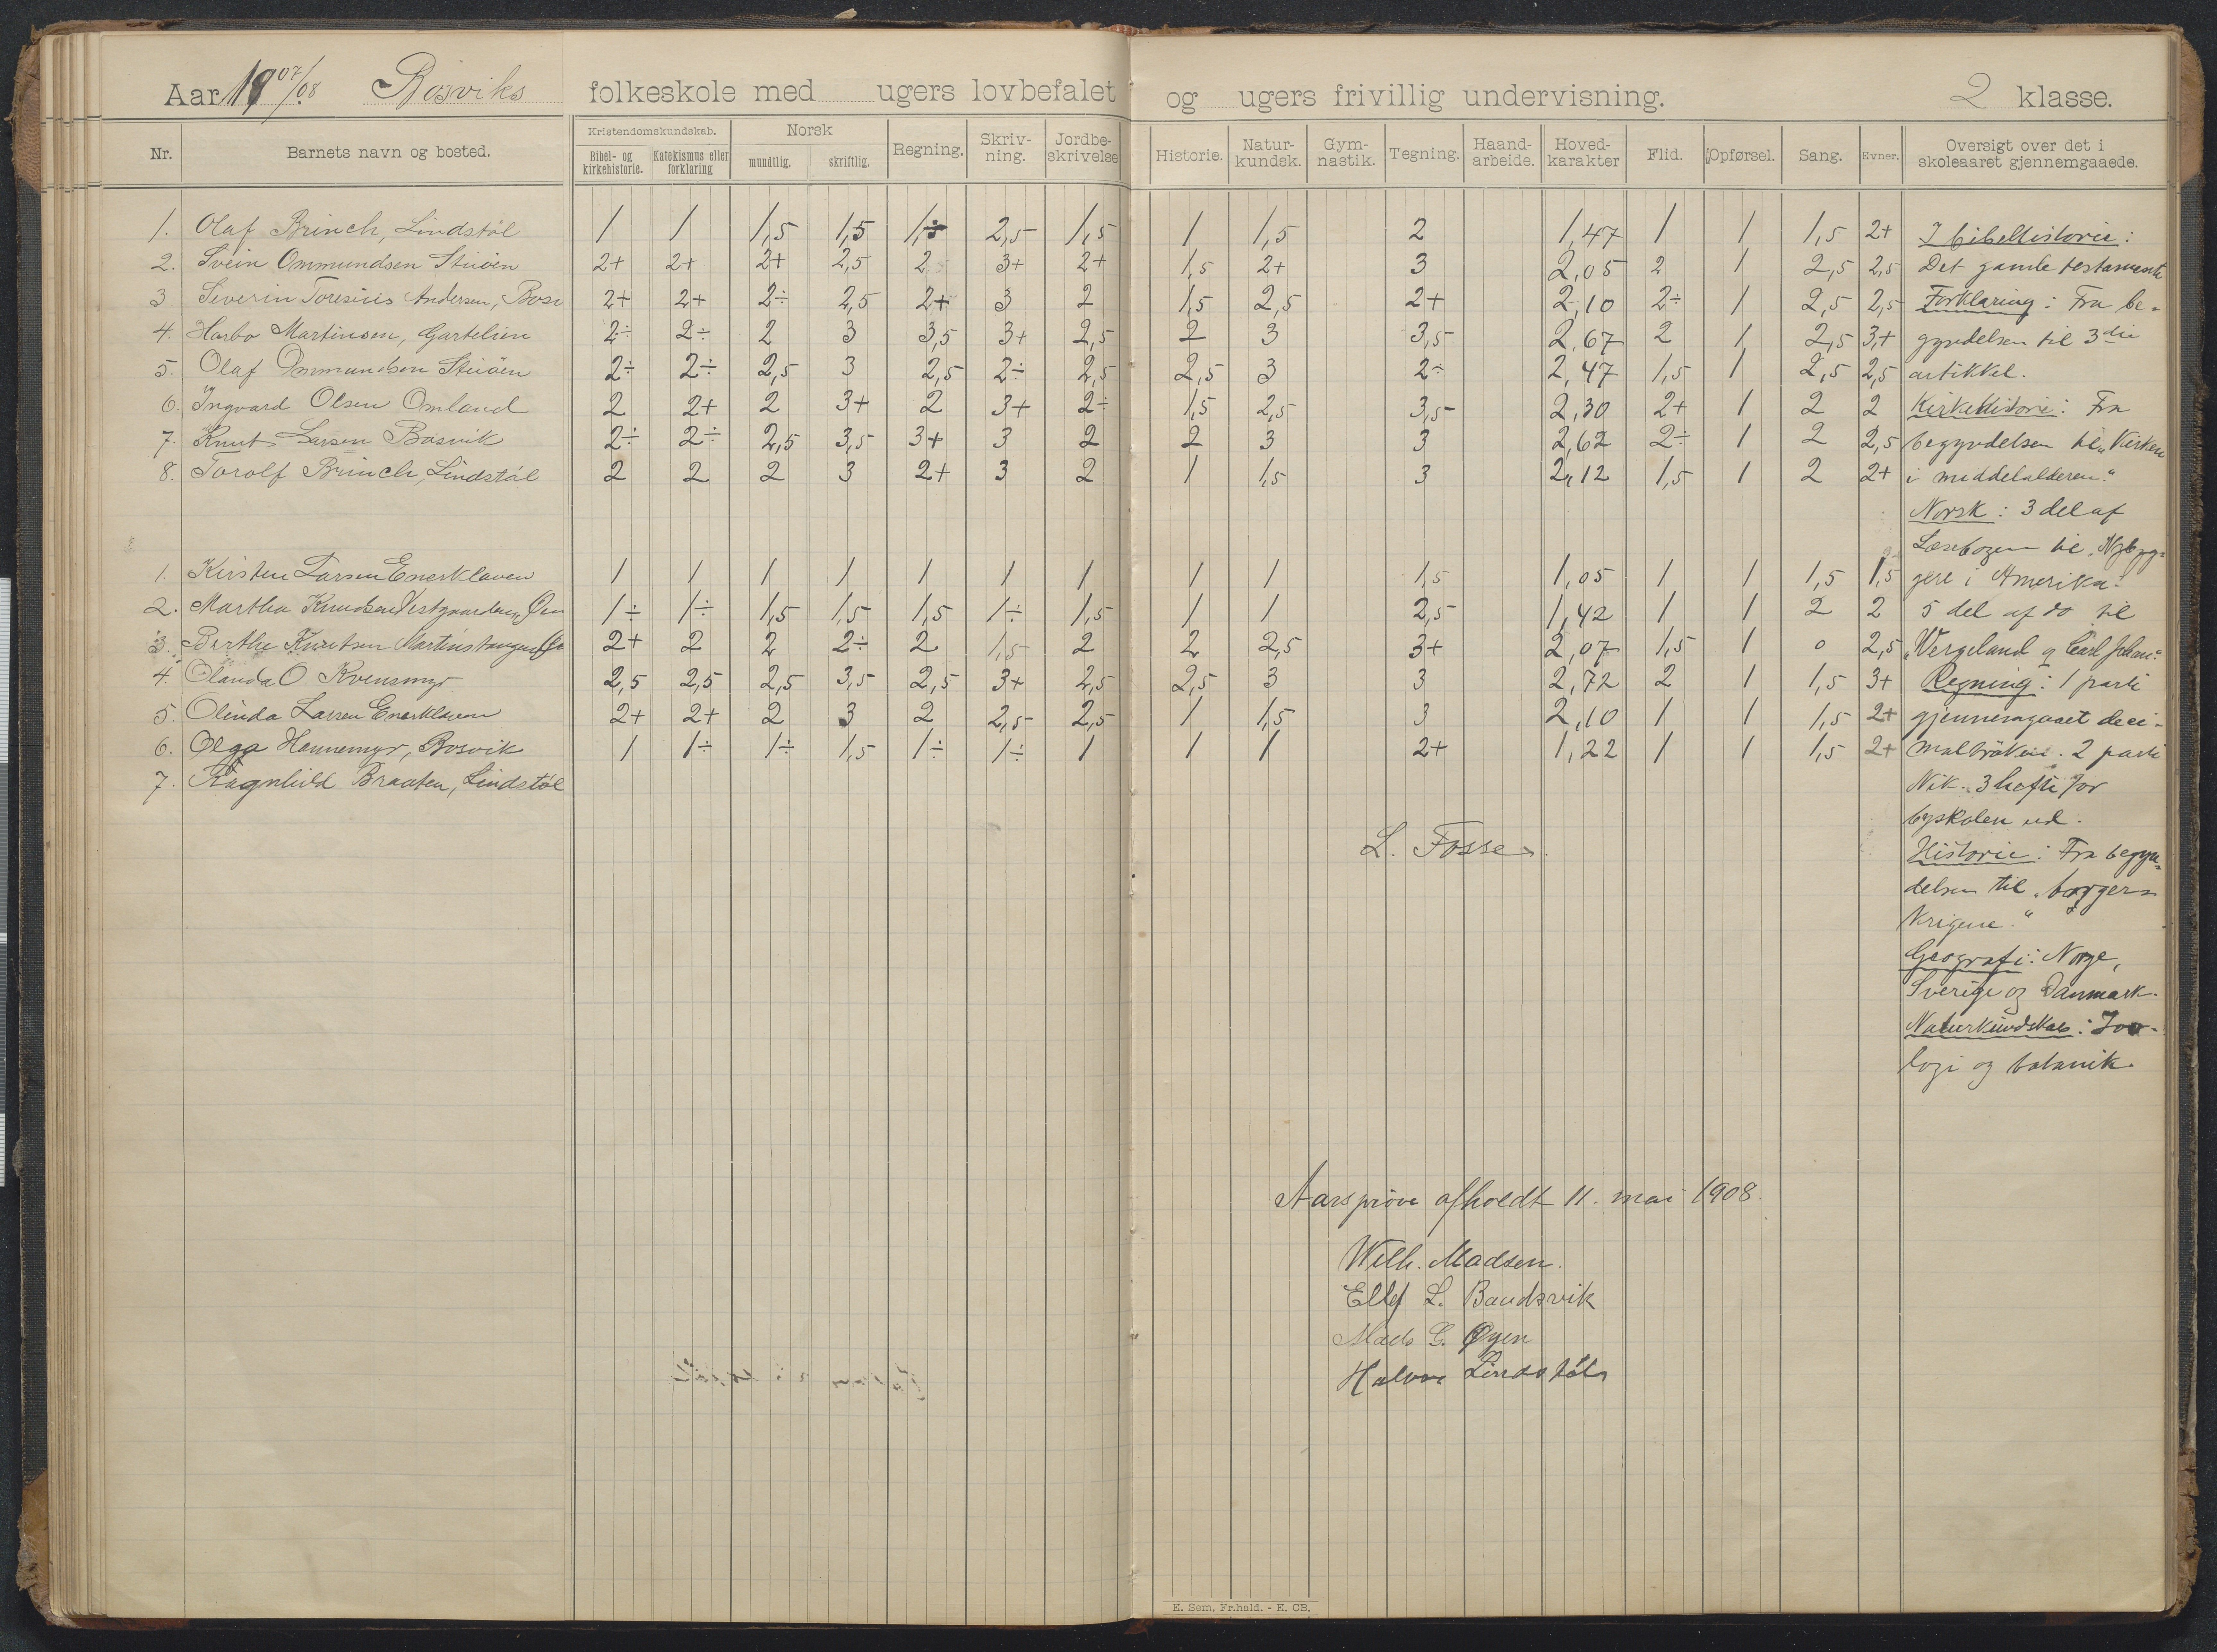 Aar 1907/08 Bosviks folkeskole med ugers lovbefalet og ugers frivillig undervisning. 2 klasse.
Nr. Barnets navn og bosted. Kristendomskundskab. Bibel- og kirkehistorie. Katekismus eller forklaring Norsk mundtlig. skriftlig. Regning. Skriv-ning. Jordbe-skrivelse Historie. Natur-kundsk. Gym-nastik. Tegning. Haand-arbeide. Hoved-karakter Flid. Opførsel. Sang. Evner. Oversigt over det i skoleaaret gjennemgaaede.
1. Olaf Brinch, Lindstøl 1 1 1,5 1,5 1,5 2,5 1,5 1 1,5 2 1,47 1 1 1,5 2+
2. Svein Ommundsen Stuöen 2+ 2+ 2+ 2,5 2 3+ 2+ 1,5 2+ 3 2,05 2 1 2,5 2,5
3 Severin Toresius Andersen, Bosv 2+ 2+ 2÷ 2,5 2+ 3 2 1,5 2,5 2+ 2,10 2÷ 1 2,5 2,5
4. Harbo Martinsen, Gartelien 2÷ 2÷ 2 3 3,5 3+ 2,5 2 3 3,5 2,67 2 1 2,5 3+
5. Olaf Ommundsen Stuöen 2÷ 2÷ 2,5 3 2,5 2÷ 2,5 2,5 3 2÷ 2,47 1,5 1 2,5 2,5
6. Ingvard Olsen Omland 2 2+ 2 3+ 2 3+ 2÷ 1,5 2,5 3,5 2,30 2+ 1 2 2
7. Knut Larsen Bosvik 2÷ 2÷ 2,5 3,5 3+ 3 2 2 3 3 2,62 2÷ 1 2 2,5
8. Torolf Brinch, Lindstøl 2 2 2 3 2+ 3 2 1 1,5 3 2,12 1,5 1 2 2+
1. Kirsten Larsen Enerklaven 1 1 1 1 1 1 1 1 1 1,5 1,05 1 1 1,5 1,5
2. Martha Knudsen Vestgaarden, 1÷ 1÷ 1,5 1,5 1,5 1÷ 1,5 1 1 2,5 1,42 1 1 2 2
3. Berthe Knutsen Martinstangen 2+ 2 2 2÷ 2 1,5 2 2 2,5 3+ 2,07 1,5 1 0 2,5
4. Olanda O. Kvensmyr 2,5 2,5 2,5 3,5 2,5 3+ 2,5 2,5 3 3 2,72 2 1 1,5 3+
5. Olinda Larsen Enerklaven 2+ 2+ 2 3 2 2,5 2,5 1 1,5 3 2,10 1 1 1,5 2+
6. Olga Hannemyr, Bosvik 1 1÷ 1÷ 1,5 1÷ 1÷ 1 1 1 2+ 1,22 1 1 1,5 2+
7. Ragnhild Braaten, Lindstøl
I bibelhistorie:
Det gamle testamente
Forklaring: Fra be-
gyndelsen til 3die
artikkel.
Kirkehistorie: Fra
begyndelsen til "Kirken
i middelalderen."
Norsk: 3 del af
Læsebogen til "Nybyg-
gere i Amerika."
5 del af do til
"Wergeland og Carl Johan".
Regning: 1 parti
gjennemgaaet deci-
malbröken. 2 parti
Nik. 3 hefte for
byskolen ud.
Historie: Fra begyn-
delsen til "borger-
krigene."
Geografi: Norge,
Sverige og Danmark.
Naturkundskab: Zoo-
logi og botanik.
L. Fosse.
Aarsprøve afholdt 11. mai 1908.
Wilh. Madsen.
Ellef L. Baudsvik
Mads G. Øyen
Halvor Lindstøl
E. Sem. Fr.hald. - E. CB.